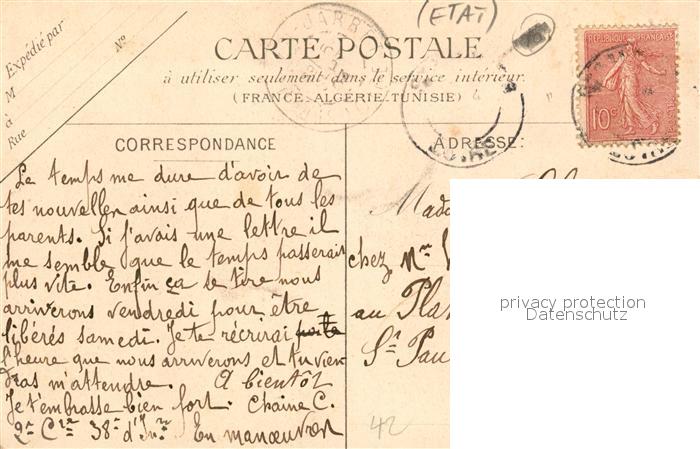 (ETAT)
Expédié par
M
à
Rue
N°
CARTE POSTALE
à utiliser seulement dans le service intérieur.
(FRANCE-ALGÉRIE-TUNISIE)
RÉPUBLIQUE FRANÇAISE
10c
CORRESPONDANCE
Le temps me dure d'avoir de
tes nouvelles ainsi que de tous les
parents. Si j'avais une lettre il
me semble que le temps passerait
plus vite. Enfin ça se tire nous
arriverons vendredi pour être
libérés samedi. Je te récrirai
l'heure que nous arriverons et tu vien
dras m'attendre. A bientôt
Je t'embrasse bien fort. Chaine C.
2e Cie 38e d'Inf.rie En manœuvres
ADRESSE:
Mada
chez Mr
au Pla
St Pau
42
privacy protection
Datenschutz